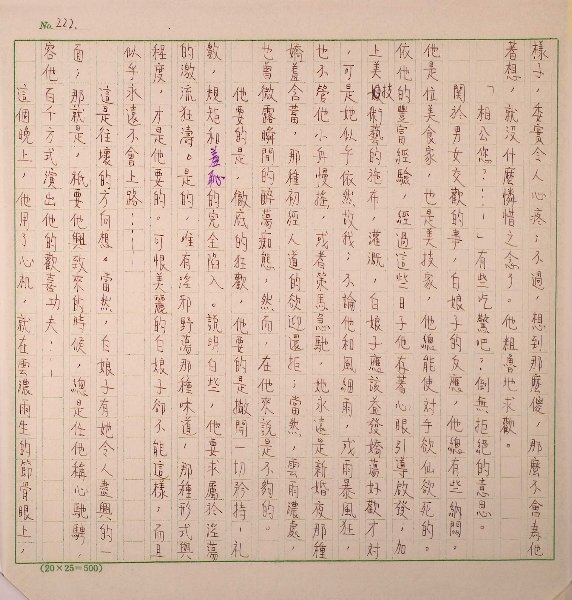 No. 222.
樣子，委實令人心疼；不過，想到那麼傻，那麼不會為他
著想，就沒什麼憐惜之念了。他粗魯地求歡。
「相公您？……」有些吃驚吧？倒無拒絕的意思。
關於男女交歡的事，白娘子的反應，他總有些納悶，
他是位美食家，也是美技家，他總能使對手欲仙欲死的。
依他的豐富經驗，經過這些日子他有著心眼引導啟發，加
上美技術藝的施布，灌溉，白娘子應該益發嬌蕩好歡才對
，可是她似乎依然故我；不論他和風細雨，或雨暴風狂，
也不管他小舟慢搖，或者策馬急馳，她永遠是新婚夜那種
嬌羞含蓄，那種初經人道的欲迎還拒；當然，雲雨濃處，
也曾微露瞬間的酥蕩痴態，然而，在他來說是不夠的。
他要的是，徹底的狂歡，他要的是撤開一切矜持，礼
數，規矩和羞恥的完全陷入。說明白些，他要求屬於淫蕩
的激流狂濤。是的，唯有淫邪野蕩那種味道，那種形式與
程度，才是他要的。可恨美麗的白娘子卻不能這樣，而且
似乎永遠不會上路……
這是往壞的方向想。當然，白娘子有她令人盡興的一
面；那就是，祇要他興致來的時候，總是任他稱心馳騁，
容他百千方式演出他的歡喜功夫……
這個晚上，他用了心机，就在雲濃雨生的節骨眼上，
(20×25=500)